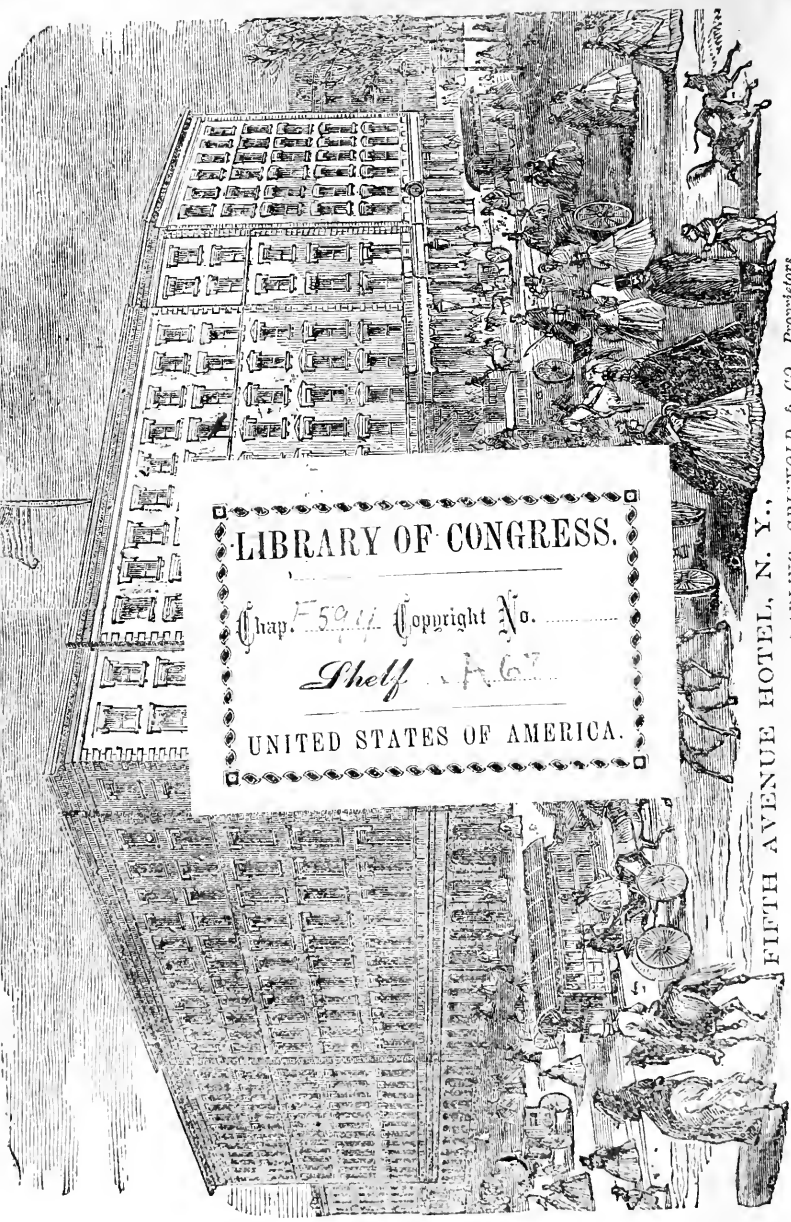 LIBRARY OF CONGRESS.
Chap. F594 Copyright No.
Shelf .A67
UNITED STATES OF AMERICA.
FIFTH AVENUE HOTEL, N. Y.,
GRISWOLD & CO., Proprietors